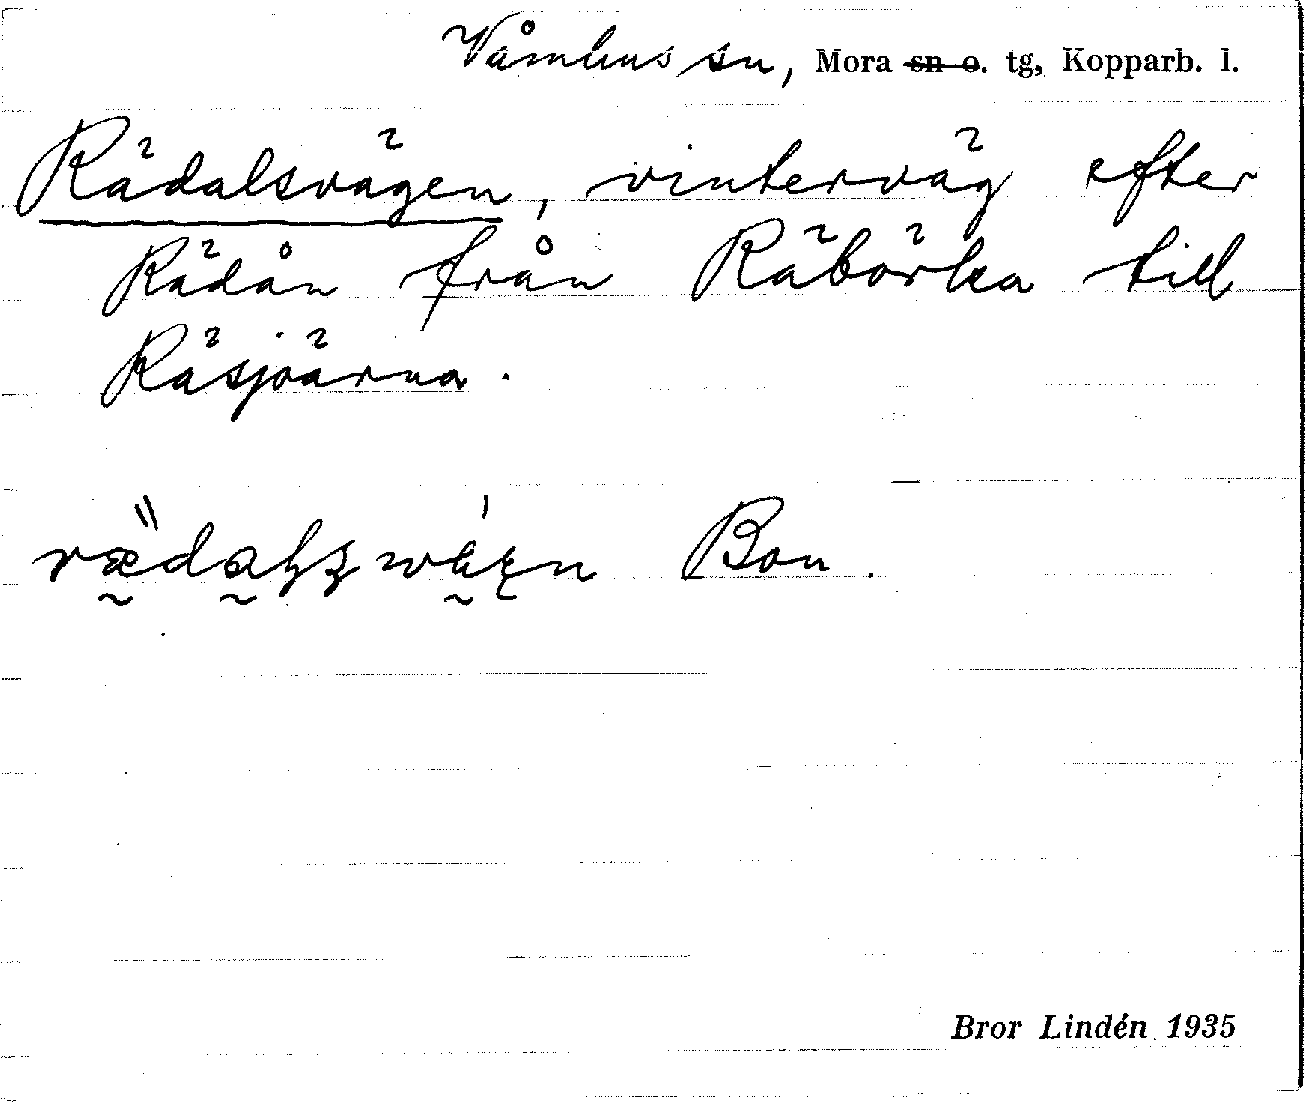 Våmhus sn, Mora sn o. tg, Kopparb. l.
Rädalsvägen, vinterväg efter
Rädån från Räbörka till
Räsjöärna.
Bon.
Bror Lindén 1935